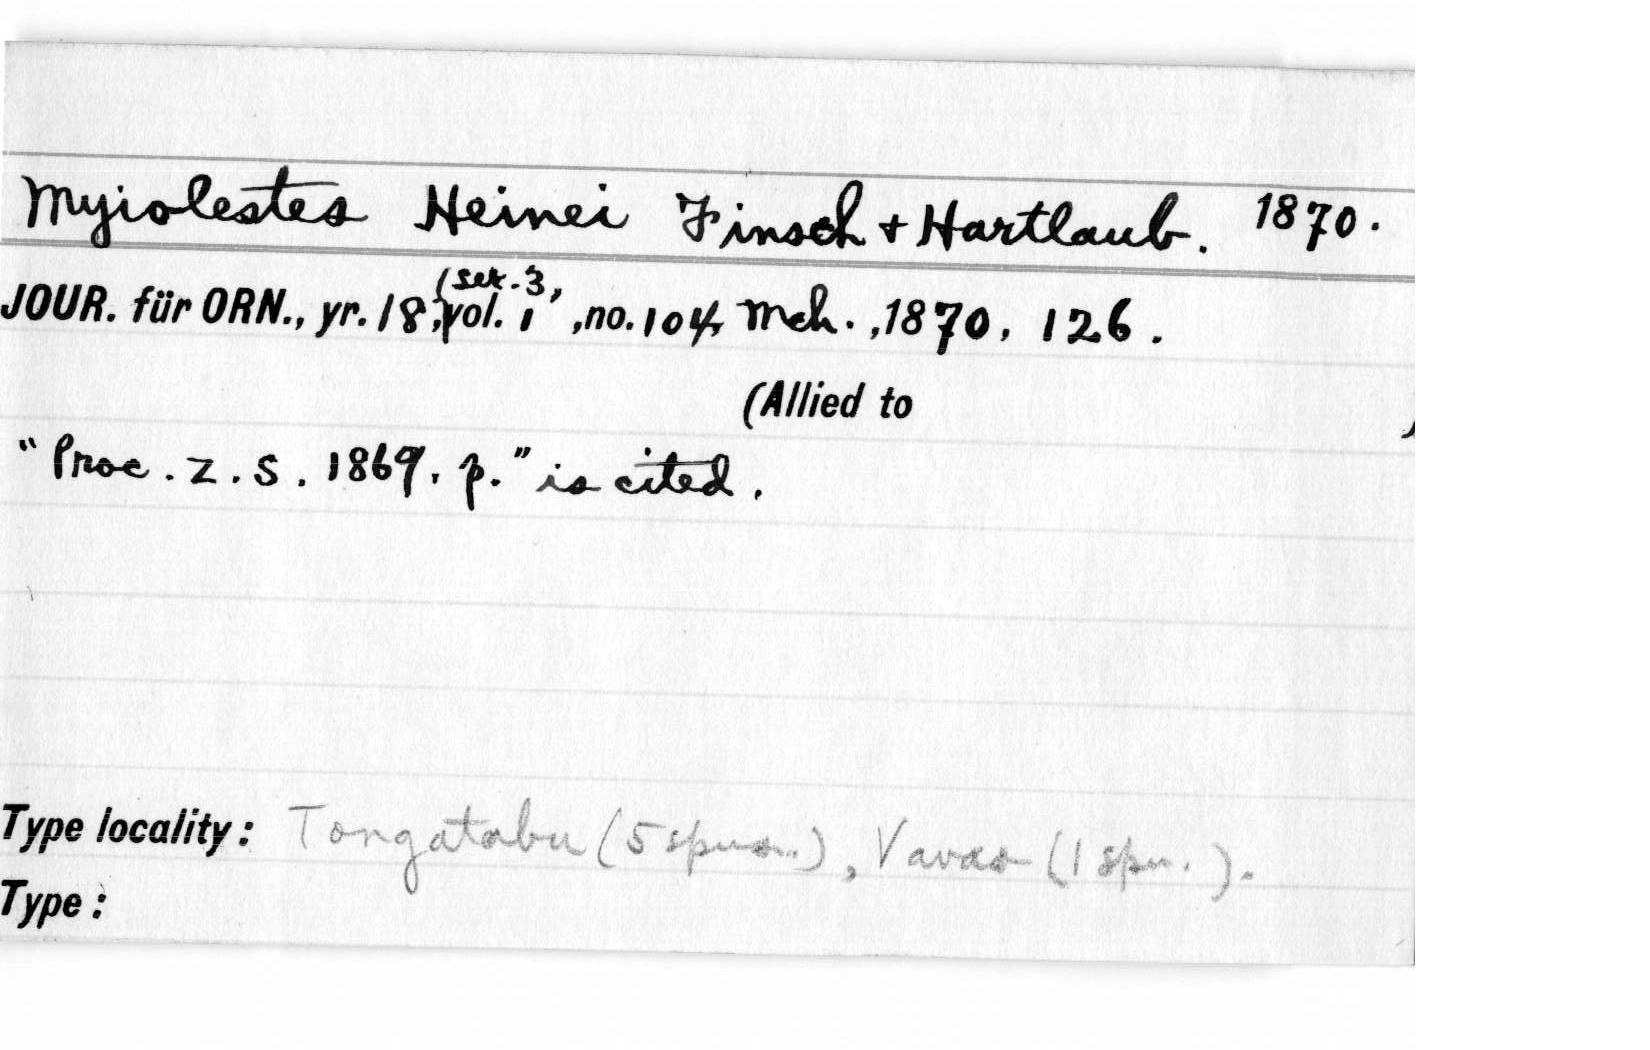 Myiolestes Heinei Finsch + Hartlaub. 1870.
JOUR. für ORN., yr. 18, (ser. 3, vol. 1, no. 104, Mch., 1870, 126.
(Allied to )
"Proc. Z. S. 1869, p." is cited.
Type locality: Tongatabu (5 spms.), Vavao (1 spm.).
Type: